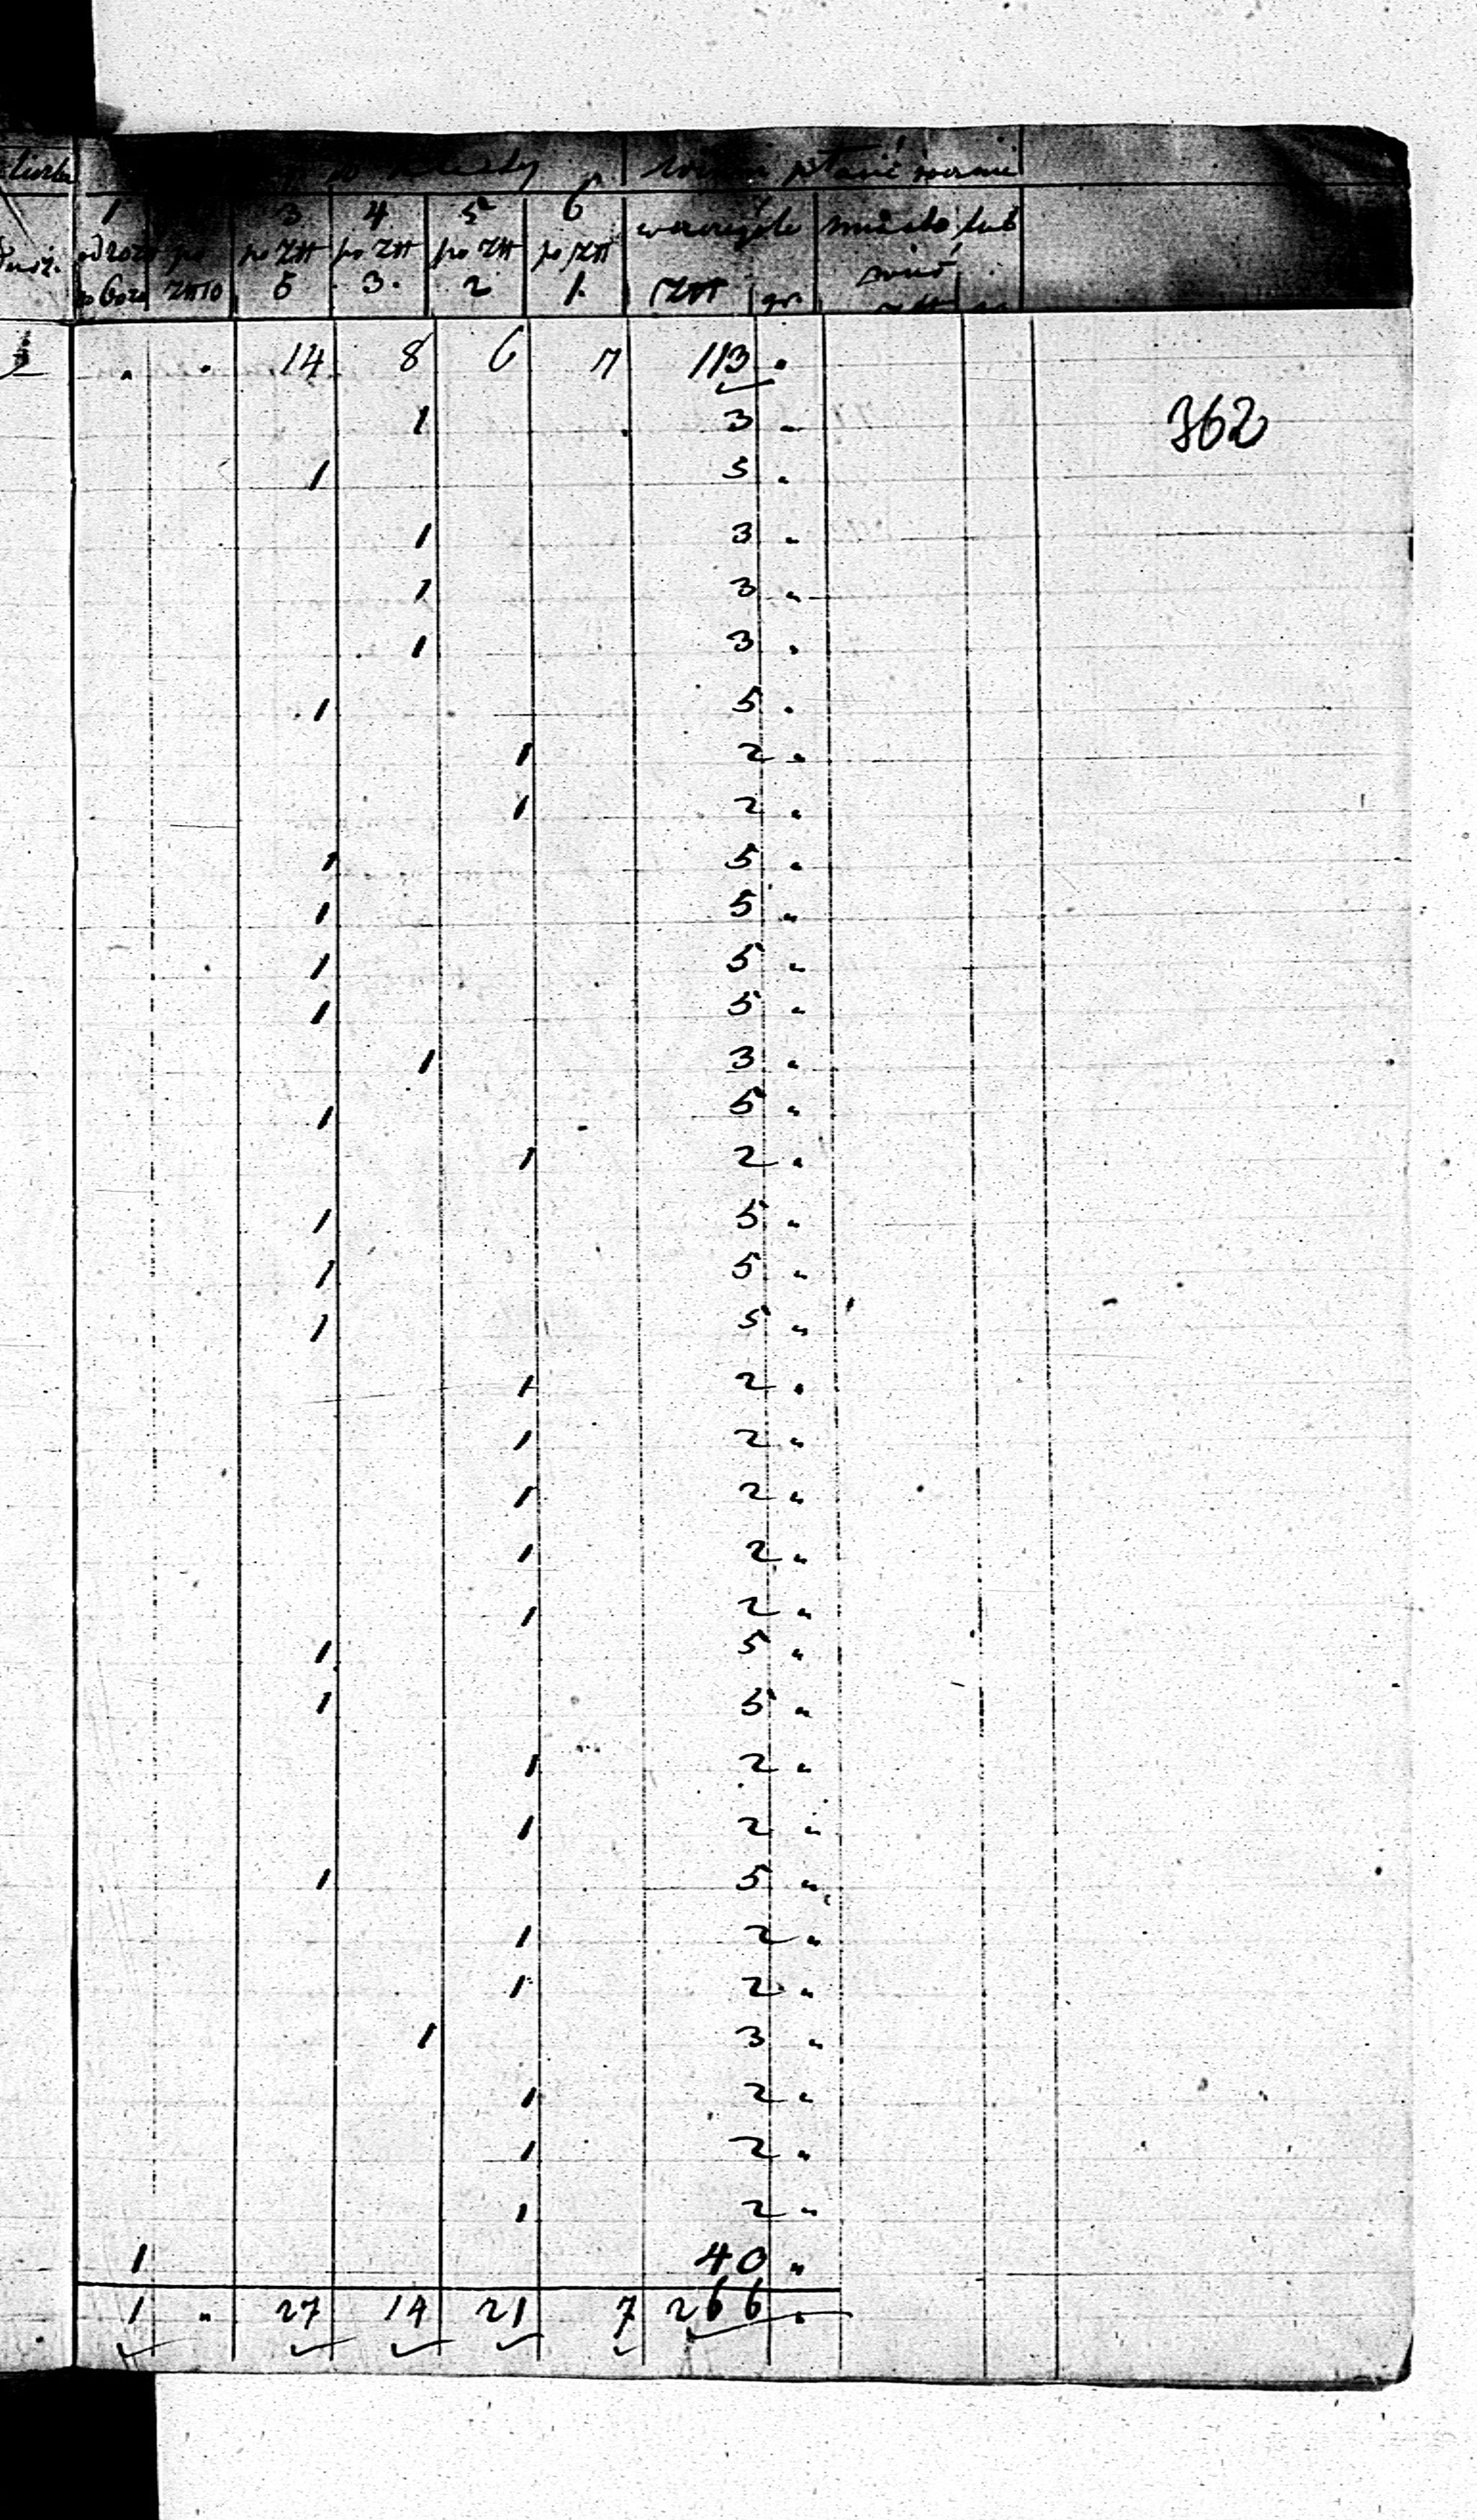 1 3 4 5 6
po złł po złł po złł po złł
złł10 5 3. 2 1. złł gr.
. . 14 8 6 7 113 .
362
1 3 „
1 5 .
1 3 .
1 3 „
1 3 .
1 5 .
1 2 „
1 2 „
1 5 „
1 5 „
1 5 „
1 5 „
1 3 „
1 5 „
1 2 „
1 5 „
1 5 „
1 5 „
1 2 „
1 2 „
1 2 „
1 2 „
1 2 „
1 5 „
1 5 „
1 2 „
1 2 „
1 5 „
1 2 „
1 2 „
1 3 „
1 2 „
1 2 „
1 2 „
1 40 „
1 „ 27 14 21 7 266 .